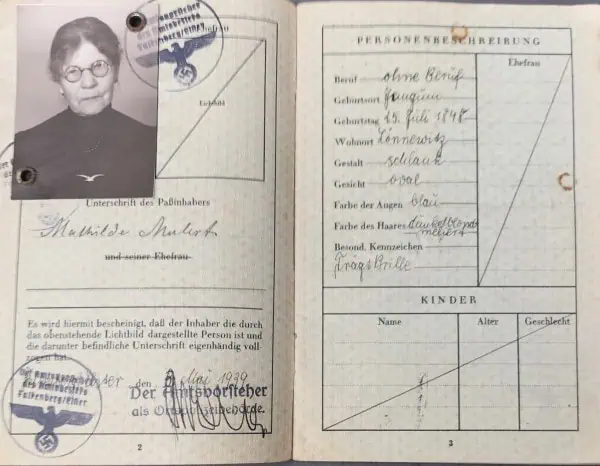 des Amtsvorstehers
Falkenberg/Elster
Ehefrau
Lichtbild
Unterschrift des Paßinhabers
Mathilde
und seiner Ehefrau
Es wird hiermit bescheinigt, daß der Inhaber die durch
das obenstehende Lichtbild dargestellte Person ist und
die darunter befindliche Unterschrift eigenhändig voll-
zogen hat
den Mai 1939
Der Amtsvorsteher
als Ortspolizeibehörde.
des Amtsvorstehers
Falkenberg/Elster
2
PERSONENBESCHREIBUNG
Ehefrau
Beruf ohne Beruf
Geburtsort
Geburtstag 25. Juli 1848
Wohnort Lönnewitz
Gestalt schlank
Gesicht oval
Farbe der Augen blau
Farbe des Haares dunkelblond
meliert
Besond. Kennzeichen
Trägt Brille
KINDER
Name Alter Geschlecht
3